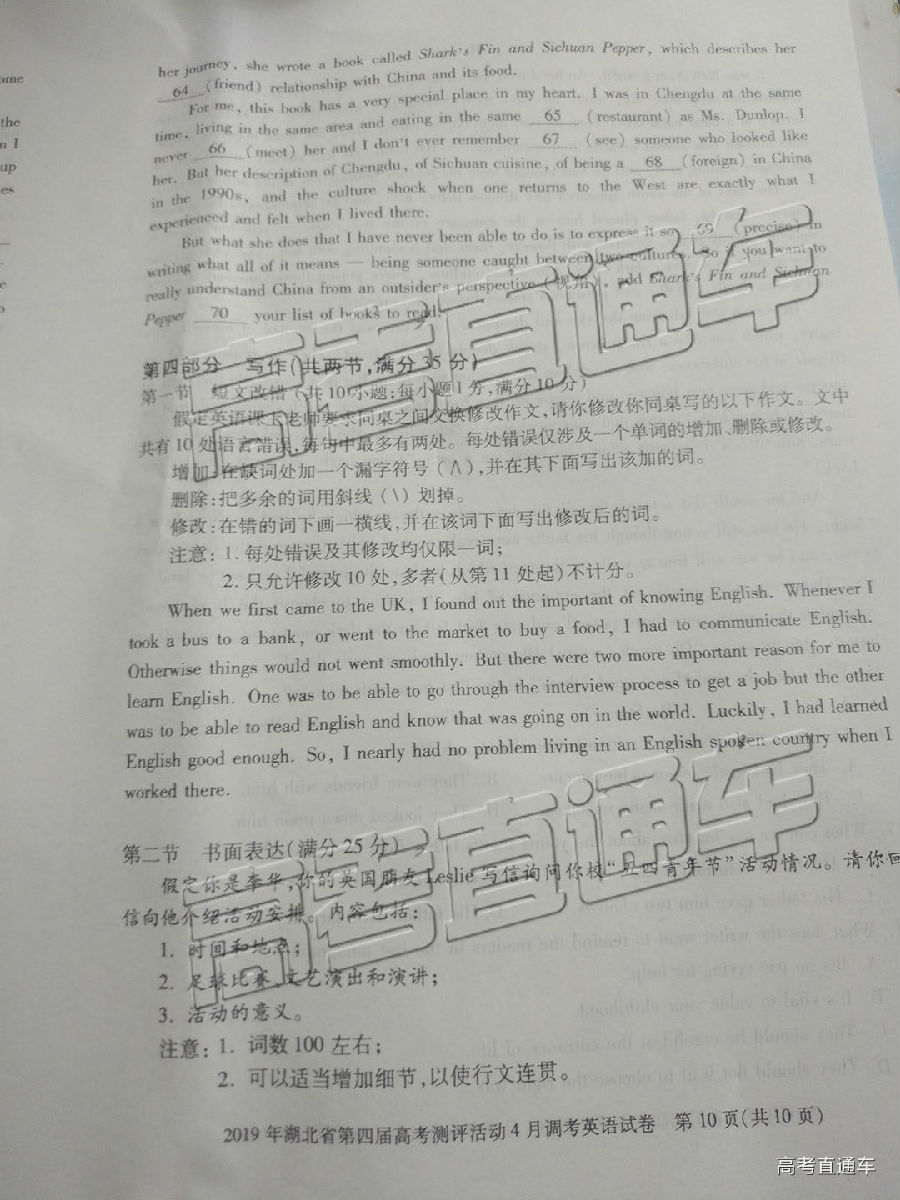 ome
the
n I
up
es
e
her journey, she wrote a book called Shark's Fin and Sichuan Pepper, which describes her
64 (friend) relationship with China and its food.
For me, this book has a very special place in my heart. I was in Chengdu at the same
time, living in the same area and eating in the same 65 (restaurant) as Ms. Dunlop. I
never 66 (meet) her and I don't ever remember 67 (see) someone who looked like
her. But her description of Chengdu, of Sichuan cuisine, of being a 68 (foreign) in China
in the 1990s, and the culture shock when one returns to the West are exactly what I
experienced and felt when I lived there.
But what she does that I have never been able to do is to express it so 69 (precise) in
writing what all of it means — being someone caught between two cultures. So if you want to
really understand China from an outsider's perspective (视角), add Shark's Fin and Sichuan
Pepper 70 your list of books to read.
第四部分 写作(共两节,满分35分)
第一节 短文改错(共10小题;每小题1分,满分10分)
假定英语课上老师要求同桌之间交换修改作文,请你修改你同桌写的以下作文。文中
共有10处语言错误,每句中最多有两处。每处错误仅涉及一个单词的增加、删除或修改。
增加:在缺词处加一个漏字符号(∧),并在其下面写出该加的词。
删除:把多余的词用斜线(\)划掉。
修改:在错的词下画一横线,并在该词下面写出修改后的词。
注意:1. 每处错误及其修改均仅限一词;
2. 只允许修改10处,多者(从第11处起)不计分。
When we first came to the UK, I found out the important of knowing English. Whenever I
took a bus to a bank, or went to the market to buy a food, I had to communicate English.
Otherwise things would not went smoothly. But there were two more important reason for me to
learn English. One was to be able to go through the interview process to get a job but the other
was to be able to read English and know that was going on in the world. Luckily, I had learned
English good enough. So, I nearly had no problem living in an English spoken country when I
worked there.
第二节 书面表达(满分25分)
假定你是李华,你的英国朋友Leslie写信询问你校“五四青年节”活动情况。请你回
信向他介绍活动安排。内容包括:
1. 时间和地点;
2. 足球比赛、文艺演出和演讲;
3. 活动的意义。
注意:1. 词数100左右;
2. 可以适当增加细节,以使行文连贯。
2019年湖北省第四届高考测评活动4月调考英语试卷 第10页(共10页)
高考直通车
高考直通车
高考直通车